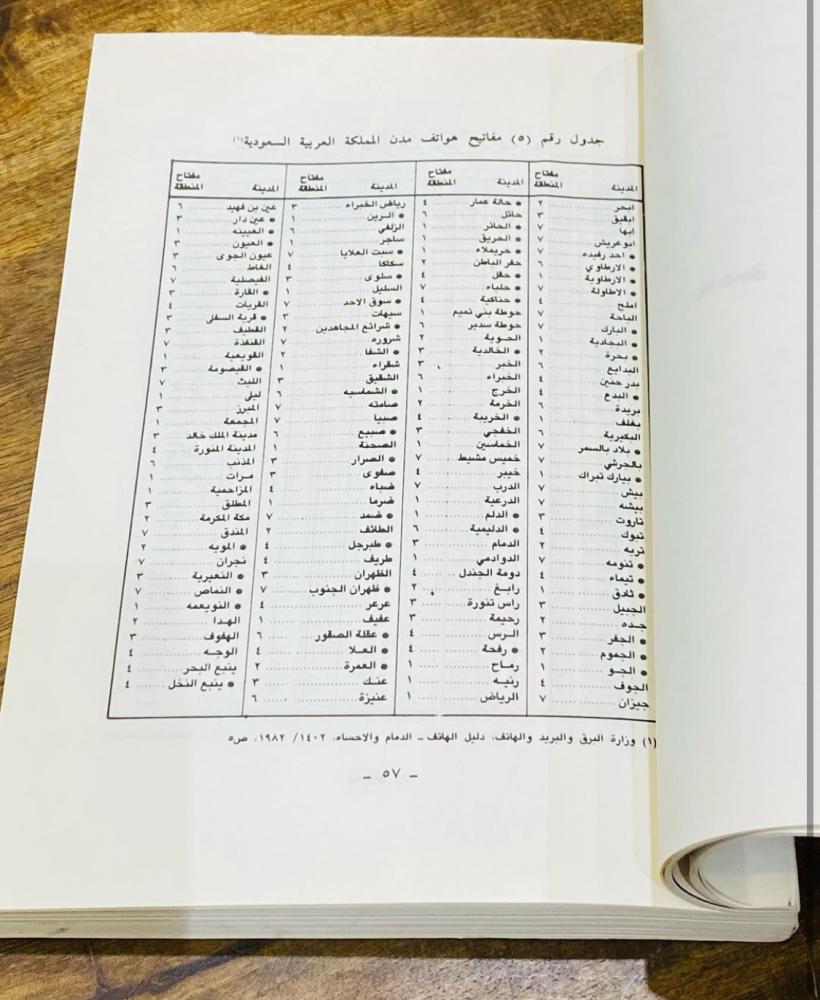 جدول رقم (٥) مفاتيح هواتف مدن المملكة العربية السعودية(١)
المدينة مفتاح المنطقة
ابحر ٢
ابقيق ٣
ابها ٧
ابو عريش ٧
● احد رفيده ٧
● الارطاوي ٦
● الارطاوية ١
● الاطاولة ٧
املج ٤
الباحة ٧
● البارك ٧
● البجادية ١
● بحرة ٢
البدايع ٦
بدر حنين ٤
● البدع ٤
بريدة ٦
يغلف ١
البكيرية ٦
● بلاد بالسمر ٧
بالجرشي ٧
● بيارك تبراك ١
بيش ٧
بيشه ٧
تاروت ٣
تبوك ٤
تربه ٢
● تنومه ٧
● تيماء ٤
● ثادق ١
الجبيل ٣
جده ٢
● الجفر ٣
● الجموم ٢
● الجو ١
الجوف ٤
جيزان ٧
المدينة مفتاح المنطقة
● حالة عمار ٤
حائل ٦
● الحائر ١
● الحريق ١
● حريملاء ١
حفر الباطن ٢
● حقل ٤
● حلباء ٧
● حناكية ٤
حوطة بني تميم ١
حوطة سدير ٦
● الحوية ٢
● الخالدية ٣
الخبر ٣
الخبراء ٦
الخرج ١
الخرمة ٢
● الخريبة ٤
الخفجي ٣
الخماسين ١
خميس مشيط ٧
خيبر ٤
الدرب ٧
الدرعية ١
● الدلم ١
● الدليمية ٦
الدمام ٣
الدوادمي ١
دومة الجندل ٤
رابغ ٢
راس تنورة ٣
رحيمة ٣
الرس ٤
● رفحة ٤
رماح ١
رنيه ١
الرياض ١
المدينة مفتاح المنطقة
رياض الخبراء ٣
● الرين ١
الزلفي ٦
ساجر ١
● سبت العلايا ٧
سكاكا ٤
● سلوى ٣
السليل ١
● سوق الاحد ٧
سيهات ٣
● شرائع المجاهدين ٢
شروره ٧
● الشفا ٢
شقراء ١
الشقيق ٣
● الشماسيه ٦
صامته ٧
صبيا ٧
● صبيع ٦
الصحنة ١
● الصرار ٣
صفوى ٣
ضباء ٤
ضرما ١
● ضمد ٧
الطائف ٢
● طبرجل ٤
طريف ٤
الظهران ٣
● ظهران الجنوب ٧
عرعر ٤
عفيف ١
● عقلة الصقور ٦
● العلا ٤
● العمرة ٢
عنك ٣
عنيزة ٦
المدينة مفتاح المنطقة
عين بن فهيد ٦
● عين دار ٣
● العيينه ١
● العيون ٣
عيون الجوى ٣
الغاط ٦
الفيصلية ٧
● القارة ٣
القريات ٤
● قرية السفلى ٣
القطيف ٣
القنفذة ٧
القويعية ١
● القيصومة ٣
الليث ٧
ليلى ١
المبرز ٣
المجمعة ١
مدينة الملك خالد ٣
المدينة المنورة ٤
المذنب ٦
مرات ١
المزاحمية ١
المطلق ٣
مكة المكرمة ٢
المندق ٧
● المويه ٢
نجران ٧
● النعيرية ٣
● النماص ٧
● النويعمه ١
الهدا ٢
الهفوف ٣
الوجه ٤
ينبع البحر ٤
● ينبع النخل ٤
(١) وزارة البرق والبريد والهاتف، دليل الهاتف ــ الدمام والاحساء، ١٤٠٢/ ١٩٨٢، ص٥
ــ ٥٧ ــ